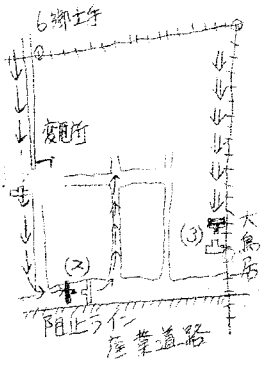 6郷土手
変電所
(3)
大鳥居
(2)
阻止ライン
産業道路